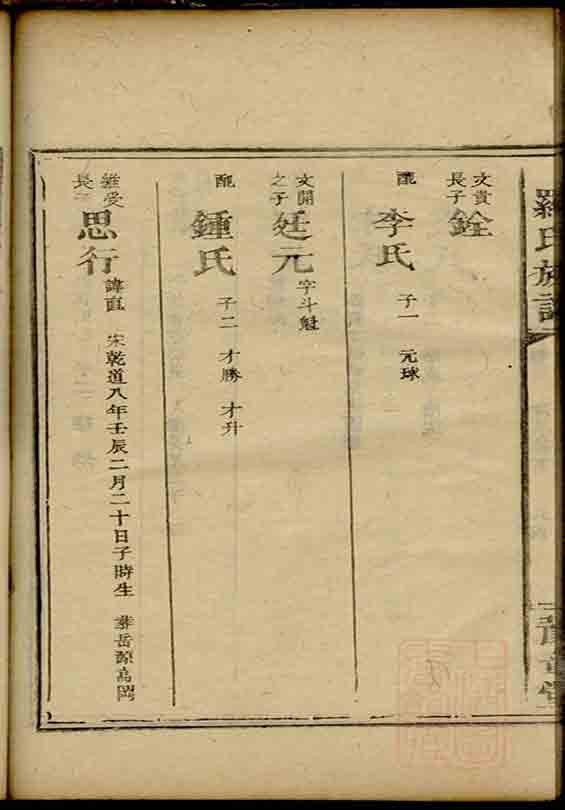 羅氏族譜
文貴長子 銓
配 李氏 子一 元球
文開之子 廷元 字斗魁
配 鍾氏 子二 才勝 才升
維受長子 思行 諱直 宋乾道八年壬辰二月二十日子時生 葬岳源高岡